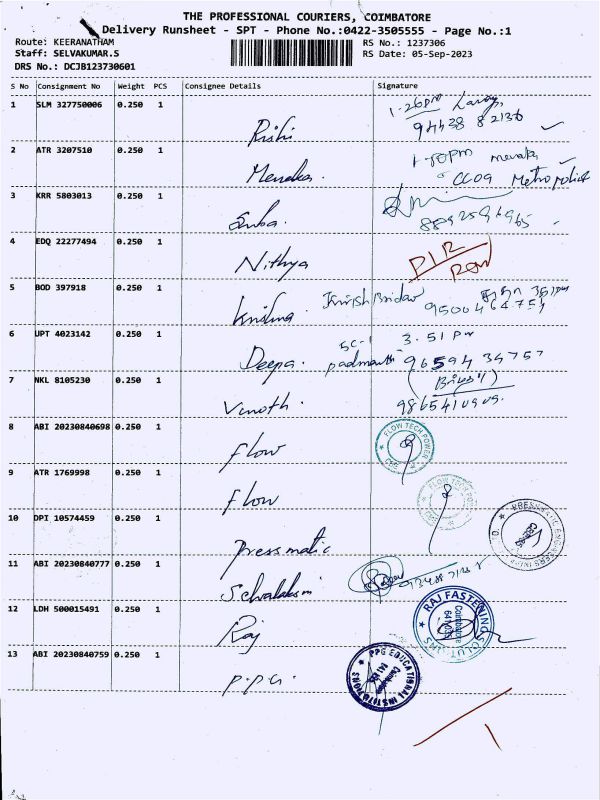 THE PROFESSIONAL COURIERS, COIMBATORE
Delivery Runsheet - SPT - Phone No.:0422-3505555 - Page No.:1
Route: KEERANATHAM
RS No.: 1237306
Staff: SELVAKUMAR.S
RS Date: 05-Sep-2023
DRS No.: DCJB123730601
S No Consignment No Weight PCS Consignee Details Signature
1 SLM 327750006 0.250 1 Rishi 1-26pm
94438 82136
2 ATR 3207510 0.250 1 Menaka. 1-50pm menaka
CC09 Metropolis
3 KRR 5803013 0.250 1 Suba.
8892596965
4 EDQ 22277494 0.250 1 Nithya
5 BOD 397918 0.250 1 Krishna
9500464751
6 UPT 4023142 0.250 1 Deepa. 5C-1 3.51 pm
padmavathi 9659434757
7 NKL 8105230 0.250 1 Vinoth.
8 ABI 20230840698 0.250 1 Flow FLOW TECH POWER
9 ATR 1769998 0.250 1 Flow FLOW TECH
10 DPI 10574459 0.250 1 Pressmatic
11 ABI 20230840777 0.250 1 Selvalakshmi
12 LDH 500015491 0.250 1 Raj RAJ FASTENING
Coimbatore
13 ABI 20230840759 0.250 1 P.P.G. PPG EDUCATIONAL INSTITUTIONS